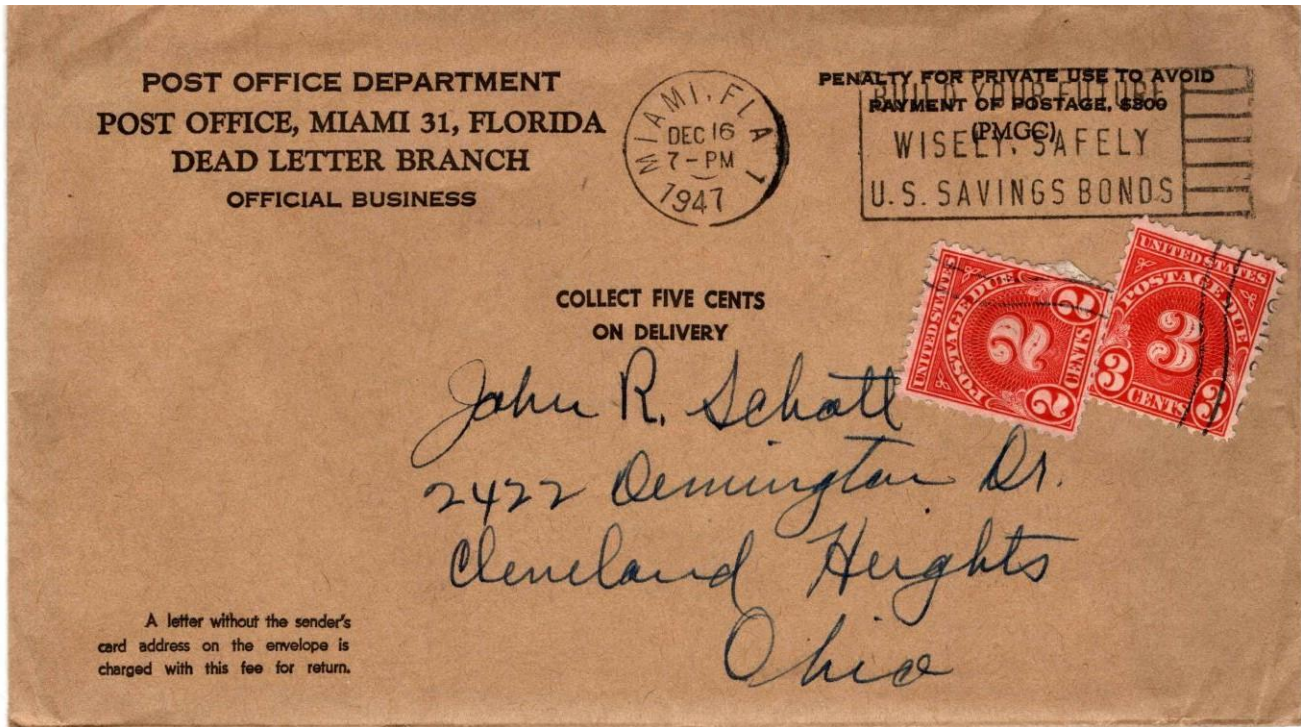 POST OFFICE DEPARTMENT
POST OFFICE, MIAMI 31, FLORIDA
DEAD LETTER BRANCH
OFFICIAL BUSINESS
MIAMI, FLA 1
DEC 16
7-PM
1947
PENALTY FOR PRIVATE USE TO AVOID
PAYMENT OF POSTAGE, $300
(PMGC)
BUILD YOUR FUTURE
WISELY, SAFELY
U.S. SAVINGS BONDS
COLLECT FIVE CENTS
ON DELIVERY
UNITED STATES
POSTAGE DUE
2
2 CENTS 2
UNITED STATES
POSTAGE DUE
3
3 CENTS 3
John R. Schott
2422 Demington Dr.
Cleveland Heights
Ohio
A letter without the sender's
card address on the envelope is
charged with this fee for return.